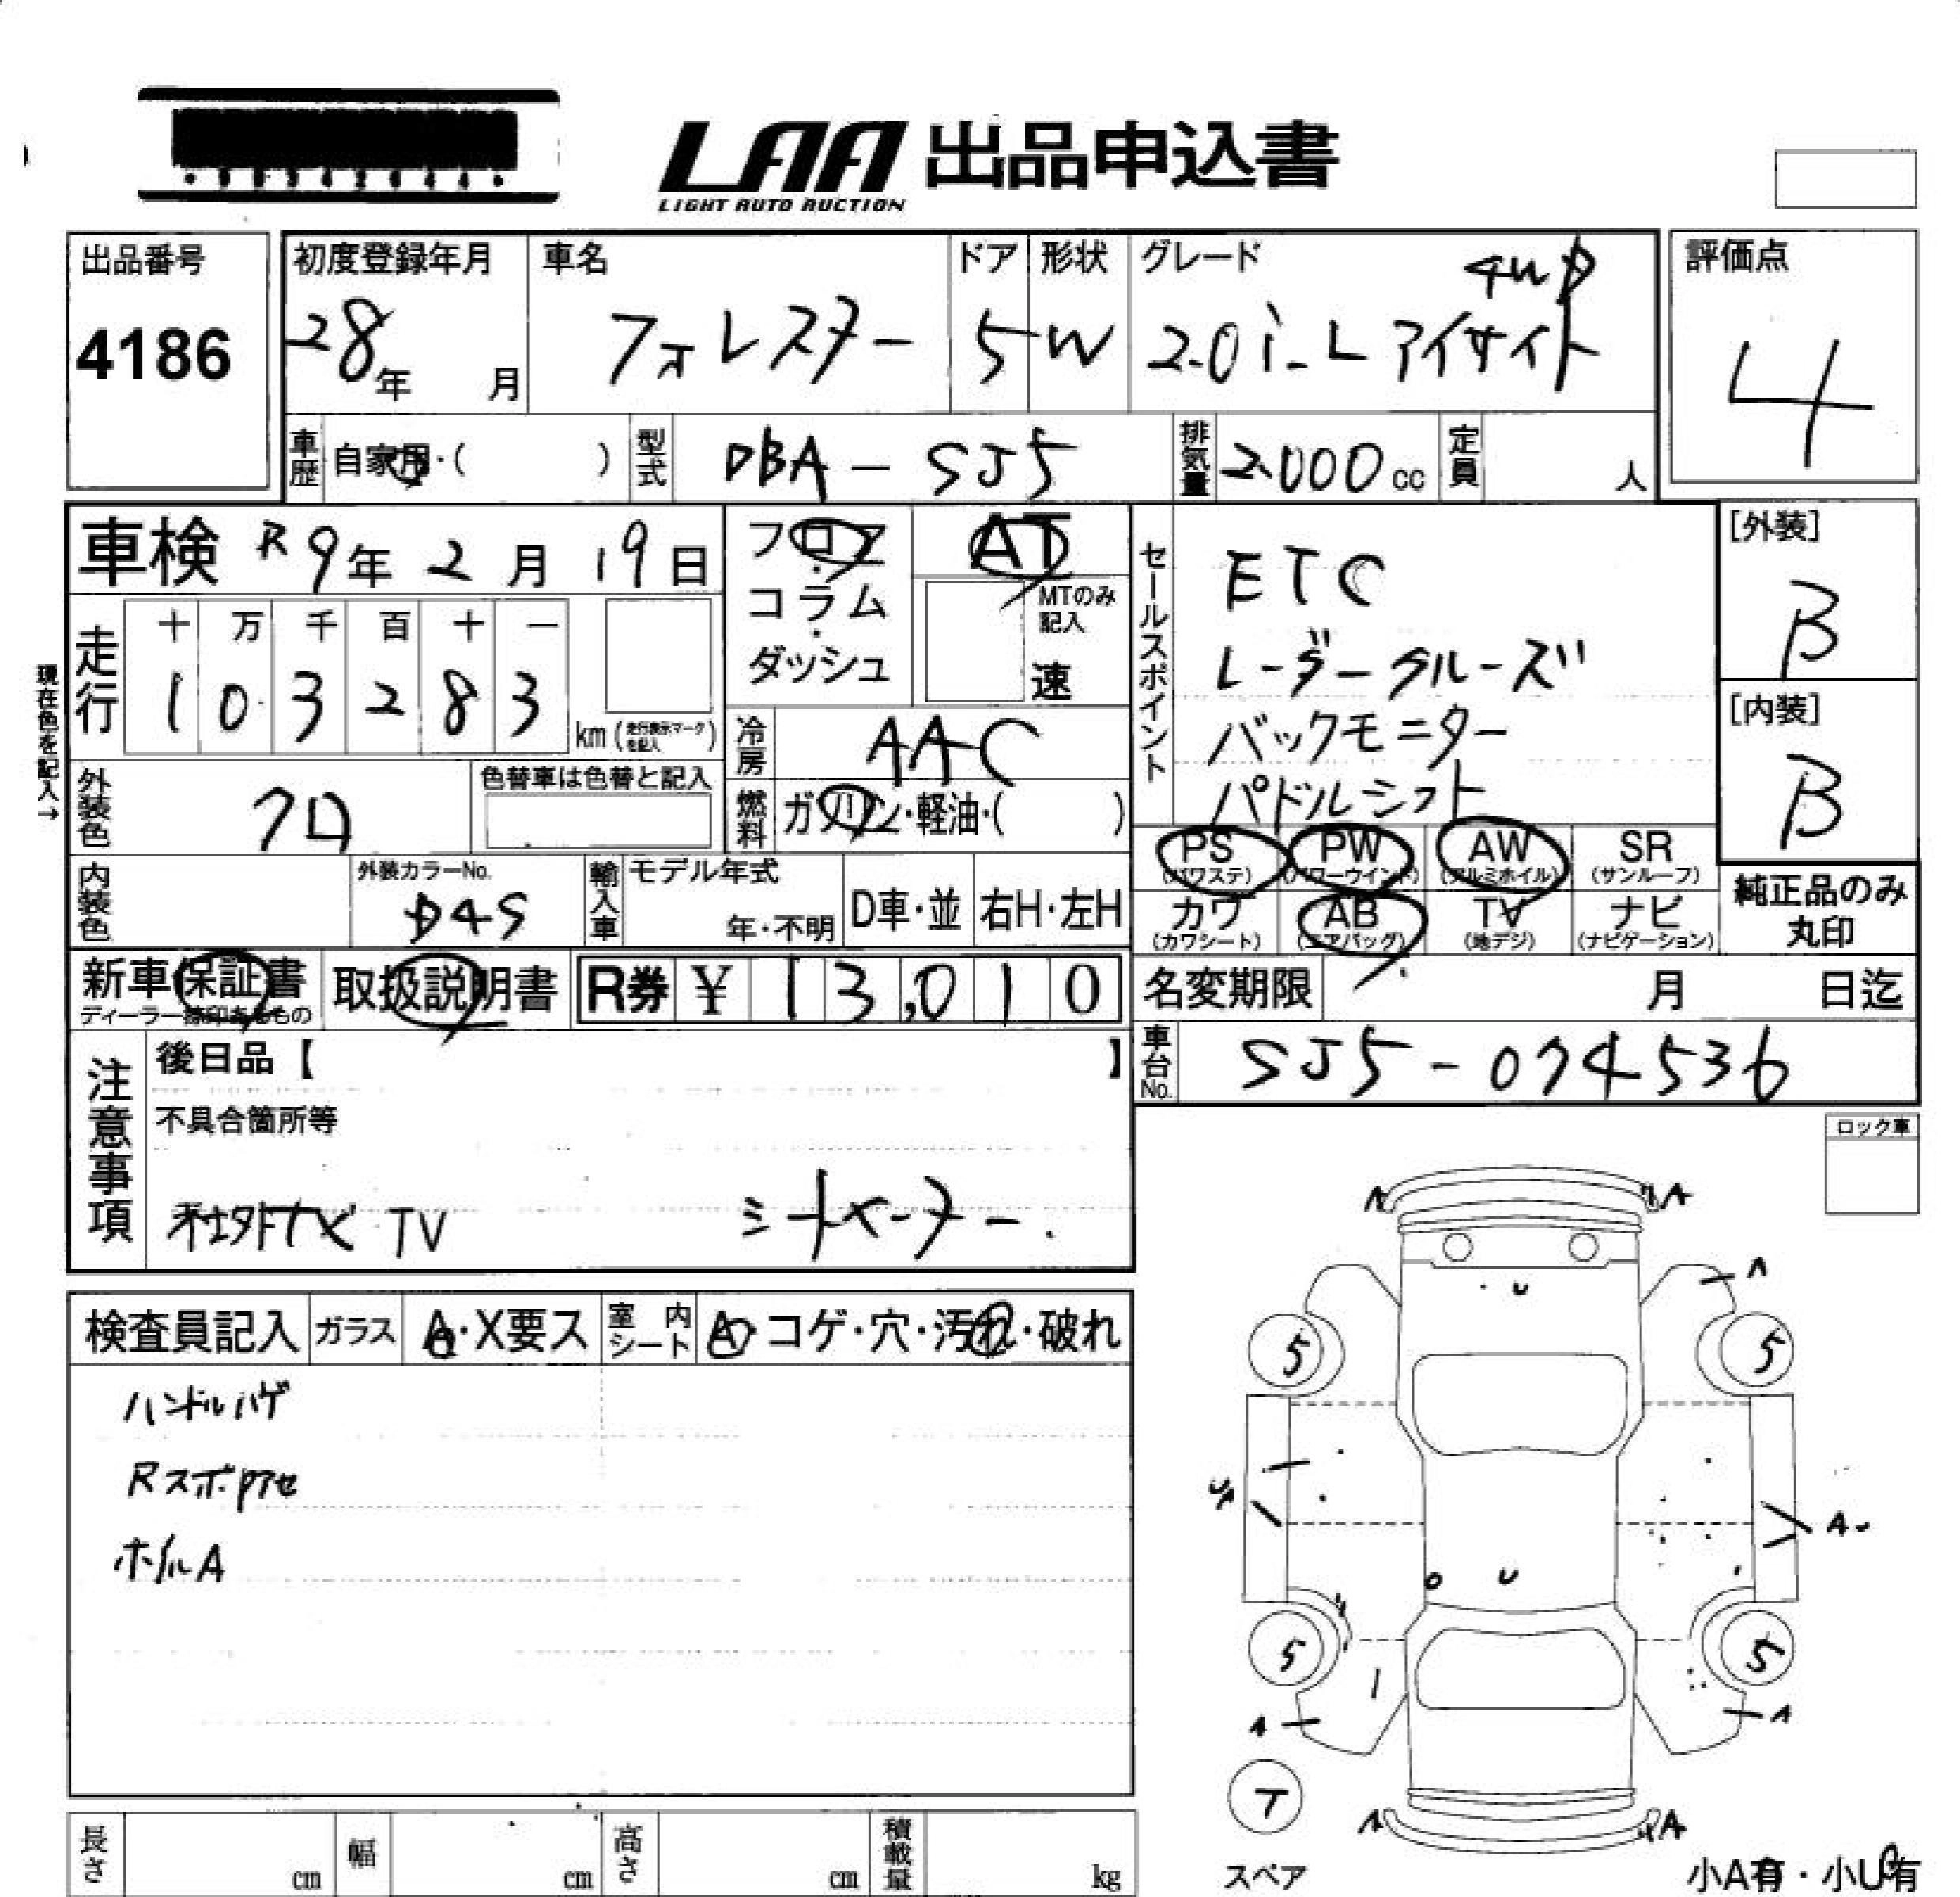 LAA 出品申込書
LIGHT AUTO AUCTION
出品番号
4186
初度登録年月
28年 月
車名
フォレスター
ドア
5
形状
W
グレード
4WD
2.0i-L アイサイト
評価点
4
車歴 自家用・( )
型式 DBA-SJ5
排気量 2.000cc
定員 人
車検 R9年2月19日
フロア・コラム・ダッシュ
AT
MTのみ記入
速
セールスポイント
ETC
レーダークルーズ
バックモニター
パドルシフト
[外装]
B
[内装]
B
現在色を記入→
走行
十 万 千 百 十 一
1 0 3 2 8 3
km(走行表示マークを記入)
冷房 AAC
外装色 クロ
色替車は色替と記入
燃料 ガソリン・軽油・( )
PS(パワステ) PW(パワーウインド) AW(アルミホイル) SR(サンルーフ)
カワ(カワシート) AB(エアバッグ) TV(地デジ) ナビ(ナビゲーション)
純正品のみ丸印
内装色
外装カラーNo.
D4S
輸入車
モデル年式
年・不明
D車・並
右H・左H
新車保証書
ディーラー捺印あるもの
取扱説明書
R券 ¥ 13,010
名変期限 月 日迄
車台No. SJ5-074536
注意事項
後日品【 】
不具合箇所等
社外ナビ TV
シートヒーター.
ロック車
検査員記入
ガラス A・X要ス
室内シート A・コゲ・穴・汚れ・破れ
ハンドルハゲ
Rスポ色アセ
ホイルA
A A
U
A
5 5
A
U
5 5
A A
T
スペア
A A
小A有・小U有
長さ cm
幅 cm
高さ cm
積載量 kg